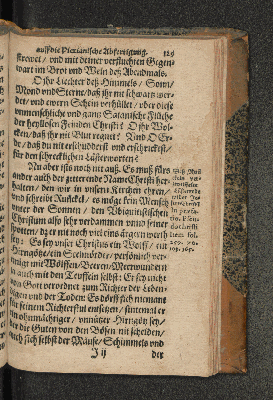 auff die Pierianische Abfertigung. 125
strewet / und mit deiner verfluchten Gegen-
wart im Brot und Wein deß Abendmals.
O ihr Liechter deß Himmels / Sonn /
Mond und Sterne / daß ihr nit schwartz wer-
det / und ewern Schein verhüllet / uber diese
unmenschliche und gantz Satanische Flüche
der heyllosen Feinden Christi? O ihr Wol-
cken / daß ihr nit Blut regnet? Und O Er-
de / daß du nit erschudderst und erschrickest /
für den schrecklichen Lästerworten?
Nu aber ists noch nit auß. Es muß fürs
ander auch der getterende Name Christi her-
halten / den wir in unsern Kirchen ehren /
und schreibt Nuscκel / es möge kein Mensch
unter der Sonnen / den Ubiquitetischen
Christum also sehr verdammen unnd seiner
spotten / dz er mit noch viel eins ärgern werth
sey: Es sey unser Christus ein Wolff / ein
Hirngötz / ein Steinmörder / persönlich ver-
einigt mit Wölffen / Beeren / Meerwundern
ja auch mit den Teuffeln selbst: Er sey nicht
von Gott verordnet zum Richter der Leben-
digen und der Todten: Es dörff sich niemant
für seinem Richterstul entsetzen / sintemal er
ein ohnmächtiger / unnützer Hirngötz sey /
der die Guten von den Bösen nit scheiden /
auch sich selbst der Mäuse / Schimmels und
J ij der